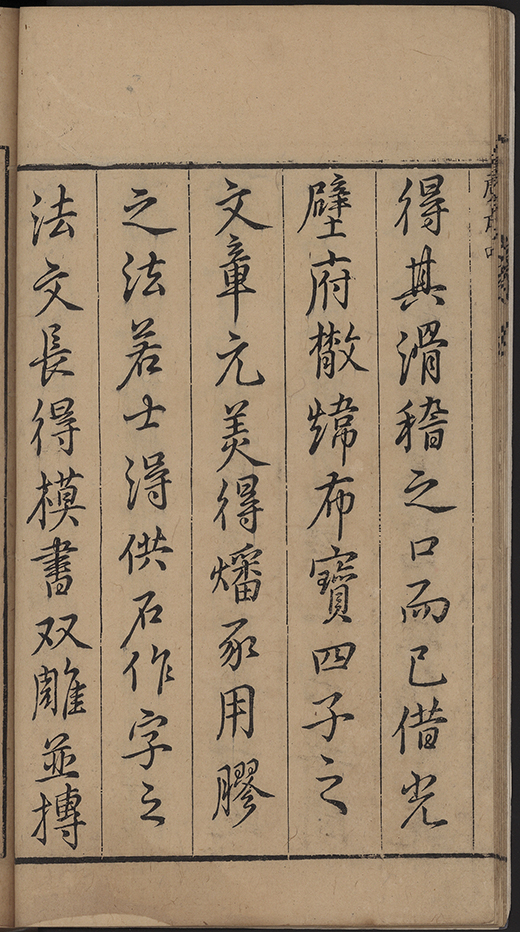 得其滑稽之口而已借光
壁府散煒布寶四子之
文章元美得燔豕用膠
之法若士得供石作字之
法文長得模書双雕並摶